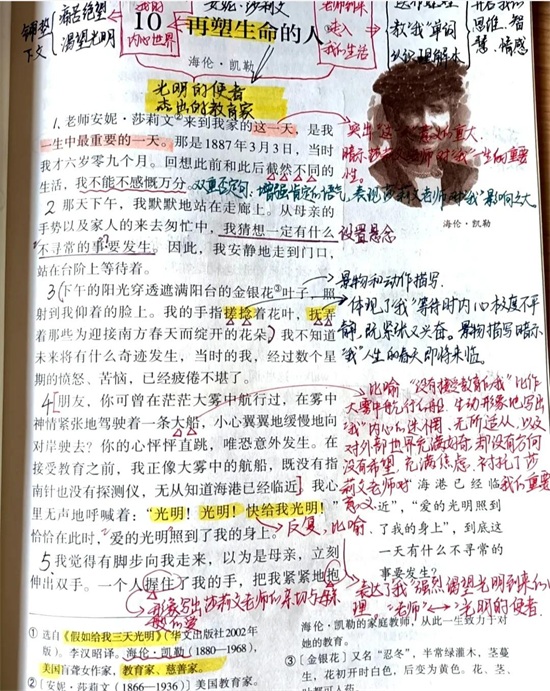 痛苦绝望
渴望光明
下文
我的
内心世界
安妮·莎莉文
走入
我的生活
教"我"单词
思维、智
慧、情感
10 再塑生命的人
海伦·凯勒
光明的使者
杰出的教育家
1.老师安妮·莎莉文②来到我家的这一天，是我
一生中最重要的一天。那是1887年3月3日，当时
我才六岁零九个月。回想此前和此后截然不同的
生活，我不能不感慨万分。
双重否定句，增强肯定的语气，表现莎莉文老师对"我"影响之大
海伦·凯勒
2 那天下午，我默默地站在走廊上。从母亲的
手势以及家人的来去匆忙中，我猜想一定有什么
不寻常的事要发生。因此，我安静地走到门口，
站在台阶上等待着。
设置悬念
3 下午的阳光穿透遮满阳台的金银花③叶子，照
射到我仰着的脸上。我的手指搓捻着花叶，抚弄
着那些为迎接南方春天而绽开的花朵。我不知道
未来将有什么奇迹发生，当时的我，经过数个星
期的愤怒、苦恼，已经疲倦不堪了。
景物和动作描写.
体现了"我"等待时内心极度不平
静，既紧张又兴奋。景物描写暗示
"我"人生的春天即将来临。
4 朋友，你可曾在茫茫大雾中航行过，在雾中
神情紧张地驾驶着一条大船，小心翼翼地缓慢地向
对岸驶去？你的心怦怦直跳，唯恐意外发生。在
接受教育之前，我正像大雾中的航船，既没有指
南针也没有探测仪，无从知道海港已经临近。我心
里无声地呼喊着："光明！光明！快给我光明！"
恰恰在此时，爱的光明照到了我的身上。
反复，比喻
比喻，"没有接受教育的我"比作
大雾中航行的船，生动形象地写出
"我"内心的迷惘，无所适从，以及
对外部世界充满好奇，却没有方向
没有希望，充满焦虑，衬托了莎
莉文老师对我的重要
意义
海港已经临
近"，"爱的光明照到
了我的身上"，到底这
一天有什么不寻常的
事要发生？
5.我觉得有脚步向我走来，以为是母亲，立刻
伸出双手。一个人握住了我的手，把我紧紧地抱
表达了"我"强烈渴望光明到来的心
理，"老师"←→"光明的使者.
① 选自《假如给我三天光明》（华文出版社2002年
版）。李汉昭译。海伦·凯勒（1880—1968），
美国盲聋女作家、教育家、慈善家。
② 〔安妮·莎莉文（1866—1936）〕美国教育家。
海伦·凯勒的家庭教师，从此一生致力于对
她的教育。
③ 〔金银花〕又名"忍冬"，半常绿灌木，茎蔓
生，花初开时白色，后变为黄色。花、茎、
叶都可入药。